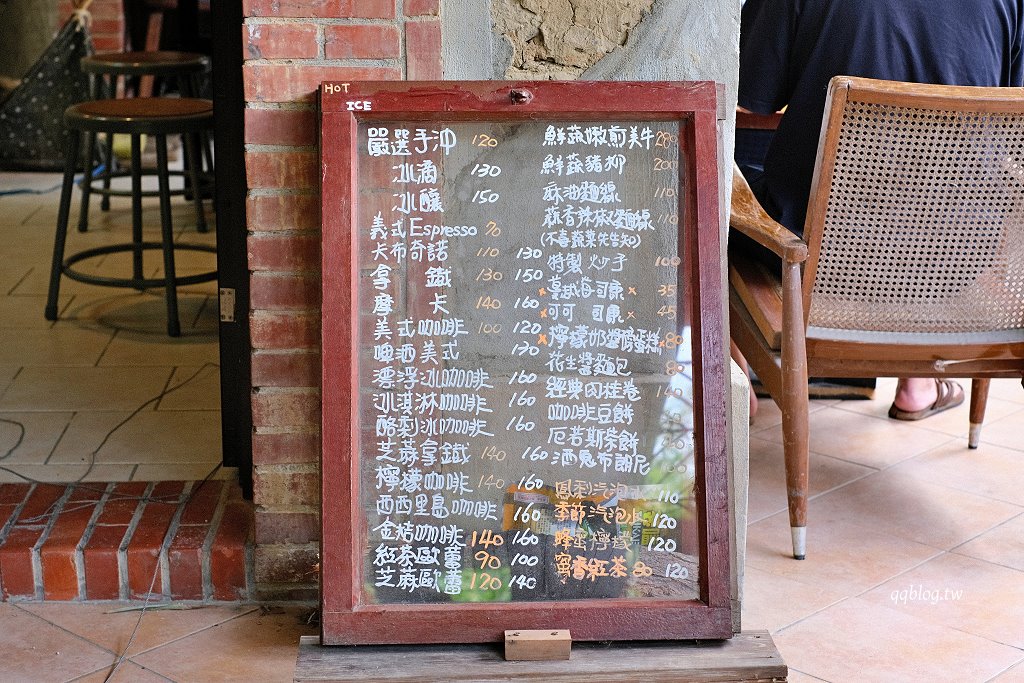 HOT
ICE
嚴選手沖 120
冰滴 130
冰釀 150
義式Espresso 70
卡布奇諾 110 130
拿鐵 130 150
摩卡 140 160
美式咖啡 100 120
啤酒美式 130
漂浮冰咖啡 160
冰淇淋咖啡 160
酪梨冰咖啡 160
芝麻拿鐵 160
檸檬咖啡 140 160
西西里島咖啡 160
金桔咖啡 140 160
紅茶歐蕾 90 100
芝麻歐蕾 120 140
鮮蔬嫩煎美牛 280
鮮蔬豬柳 200
麻油麵線 110
麵線 110
(不喜蔬菜先告知)
特製 炒子 100
蔓越莓司康 35
可可 司康 45
檸檬奶 蛋糕 80
花生醬麵包 80
經典肉桂卷 140
咖啡豆餅
厄若斯茶餅
酒鬼布朗尼 100
鳳梨汽泡水 110
季節汽泡水 120
蜂蜜檸檬 120
蜜香紅茶 80 120
qqblog.tw